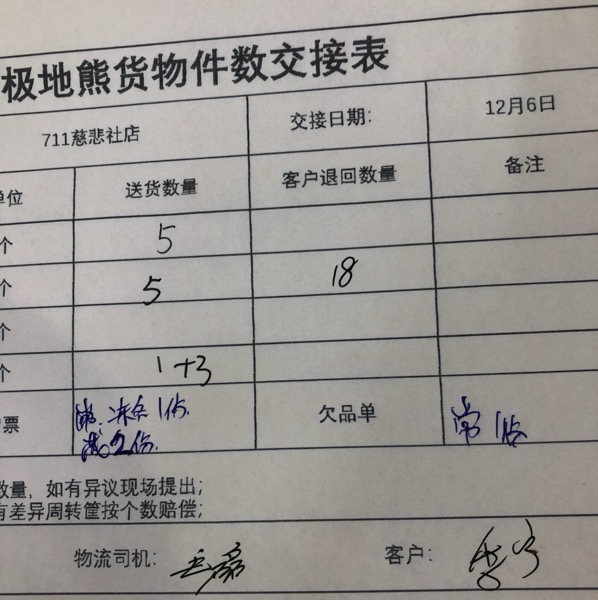 极地熊货物件数交接表
711慈悲社店 交接日期： 12月6日
单位 送货数量 客户退回数量 备注
个 5
个 5 18
个
个 1+3
票 常. 冻各1份. 欠品单 常1份
数量，如有异议现场提出；
有差异周转筐按个数赔偿；
物流司机： 客户：